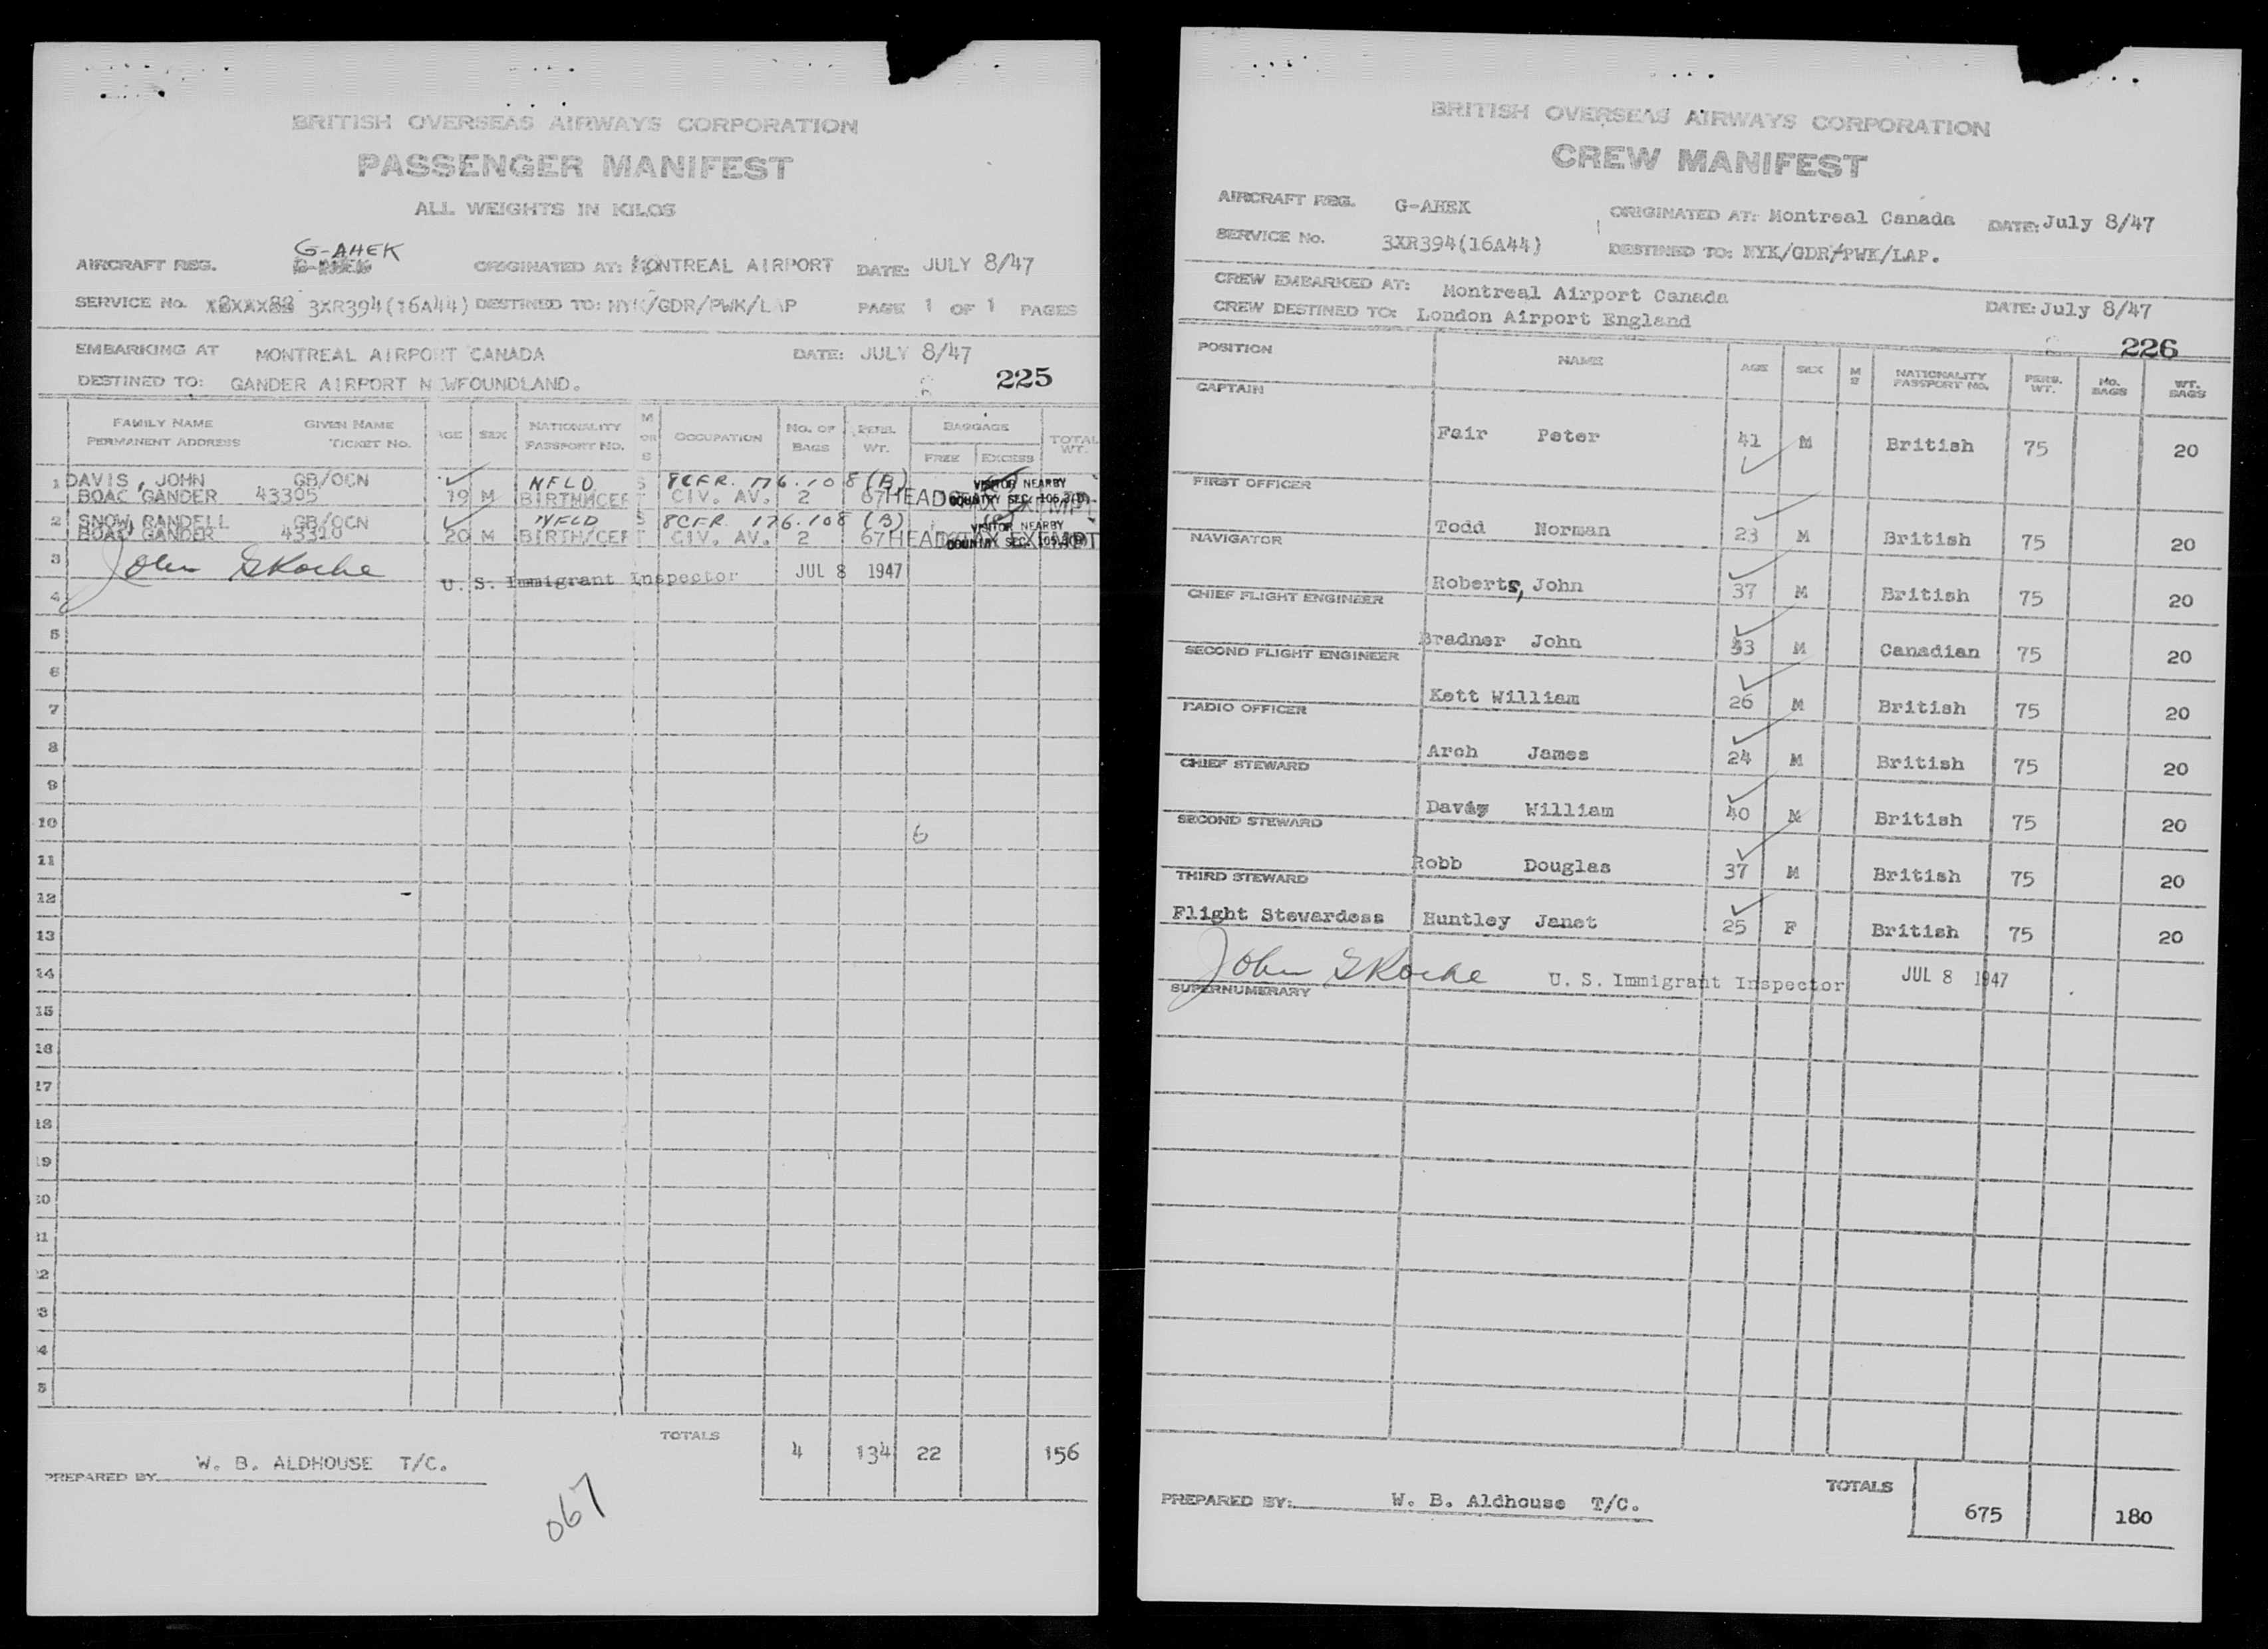 BRITISH OVERSEAS AIRWAYS CORPORATION
PASSENGER MANIFEST
ALL WEIGHTS IN KILOS
G-AHEK
AIRCRAFT REG. G-AHEK ORIGINATED AT: MONTREAL AIRPORT DATE: JULY 8/47
SERVICE No. 3XR394(16A44) DESTINED TO: NYK/GDR/PWK/LAP PAGE 1 OF 1 PAGES
EMBARKING AT MONTREAL AIRPORT CANADA DATE: JULY 8/47
DESTINED TO: GANDER AIRPORT NEWFOUNDLAND. 225
FAMILY NAME GIVEN NAME AGE SEX NATIONALITY M OR S OCCUPATION No. OF BAGS WT. BAGGAGE TOTAL WT.
PERMANENT ADDRESS TICKET No. PASSPORT No. FREE EXCESS
1 DAVIS, JOHN GB/OCN NFLD S 8CFR. 176.108 (B) VISITOR NEARBY
BOAC GANDER 43305 19 M BIRTH/CERT CIV. AV. 2 67 HEAD TAX EXEMPT COUNTRY SEC.
2 SNOW, RANDELL GB/OCN NFLD S 8CFR. 176.108 (B) VISITOR NEARBY
BOAC GANDER 43310 20 M BIRTH/CERT CIV. AV. 2 67 HEAD TAX EXEMPT COUNTRY SEC.
3 John S Roche U. S. Immigrant Inspector JUL 8 1947
4
5
6
7
8
9
10 6
11
12
13
14
15
16
17
18
19
20
21
22
23
24
25
TOTALS 4 134 22 156
PREPARED BY W. B. ALDHOUSE T/C.
067
BRITISH OVERSEAS AIRWAYS CORPORATION
CREW MANIFEST
AIRCRAFT REG. G-AHEK ORIGINATED AT: Montreal Canada DATE: July 8/47
SERVICE No. 3XR394(16A44) DESTINED TO: NYK/GDR/PWK/LAP.
CREW EMBARKED AT: Montreal Airport Canada DATE: July 8/47
CREW DESTINED TO: London Airport England
226
POSITION NAME AGE SEX M S NATIONALITY PASSPORT No. PERS. WT. No. BAGS WT. BAGS
CAPTAIN
Fair Peter 41 M British 75 20
FIRST OFFICER
Todd Norman 23 M British 75 20
NAVIGATOR
Roberts, John 37 M British 75 20
CHIEF FLIGHT ENGINEER
Bradner John 33 M Canadian 75 20
SECOND FLIGHT ENGINEER
Kett William 26 M British 75 20
RADIO OFFICER
Arch James 24 M British 75 20
CHIEF STEWARD
William 40 M British 75 20
SECOND STEWARD
Robb Douglas 37 M British 75 20
THIRD STEWARD
Flight Stewardess Huntley Janet 25 F British 75 20
John S Roche U. S. Immigrant Inspector JUL 8 1947
SUPERNUMERARY
TOTALS 675 180
PREPARED BY: W. B. Aldhouse T/C.